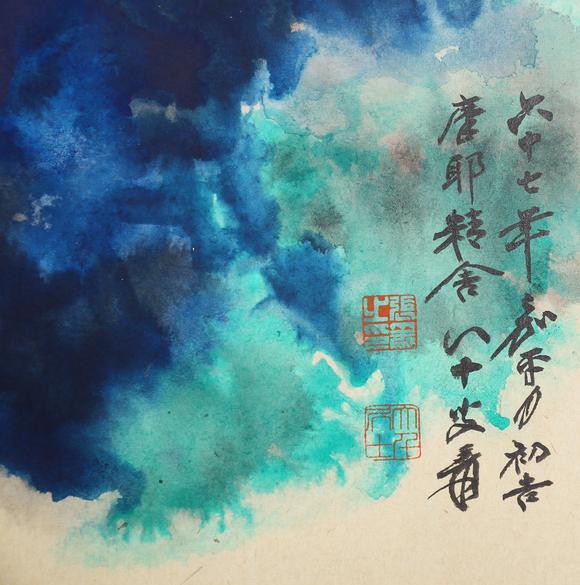 六十七年嘉平月初吉
摩耶精舍八十叟爰
張爰之印
大千居士